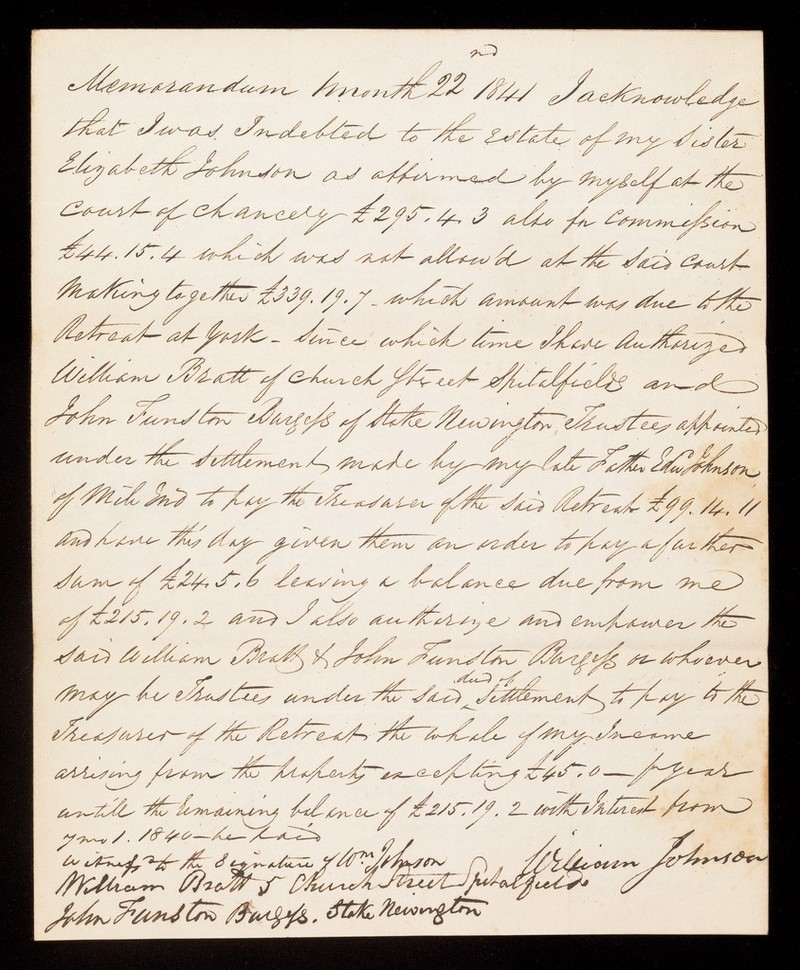 Memorandum 1 month 22nd 1841 I acknowledge
that I was Indebted to the Estate of my Sister
Elizabeth Johnson as affirmed by myself at the
Court of Chancery £295.4.3 also for Commission
£44.15.4 which was not allow'd at the said Court
Making together £339.19.7 - which amount was due to the
Retreat at York - Since which time I have Authorized
William Bratt of Church Street Spitalfields and
John Funston Burgess of Stoke Newington, Trustees appointed
under the Settlement made by my late Father Edw Johnson
of Mile End to pay the Treasurer of the said Retreat £99.14.11
and have this day given them an order to pay a further
Sum of £24.5.6 leaving a balance due from me
of £215.19.2 and I also authorize and empower the
said William Bratt & John Funston Burgess or whoever
may be Trustees under the said deed of Settlement to pay to the
Treasurer of the Retreat the whole of my Income
arrising from the property excepting £45.0 — pr year
untill the remaining balance of £215.19.2 with Interest from
7 mo 1. 1840 - be paid
Witness to the Signature of Wm Johnson
William Johnson
William Bratt 5 Church Street Spitalfields
John Funston Burgess. Stoke Newington